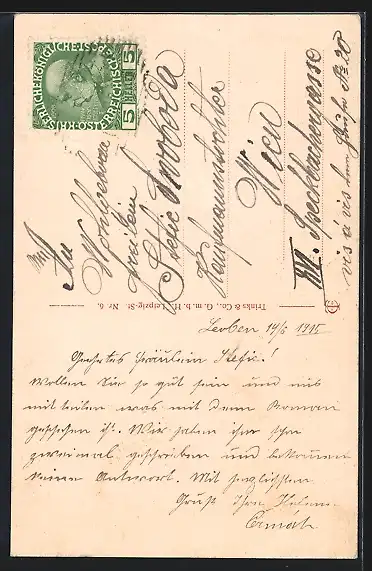 KAISERLICHE KÖNIGLICHE ÖSTERREICHISCHE POST
5 HELLER 5
An
Wohlgeboren
Fräulein
Stefie Swoboda
Kaufmannstochter
Wien
XVI. Speckbachergasse
vis á vis von No 20
Trinks & Co., G. m. b. H., Leipzig-St. Nr. 6.
Leoben 14/5 1915
Geehrtes Fräulein Stefie!
Wollen Sie so gut sein und uns
mitteilen was mit dem Roman
geschehen ist. Wir haben ihr schon
zweimal geschrieben und bekommen
keine Antwort. Mit herzlichsten
Gruß Ihre Helene